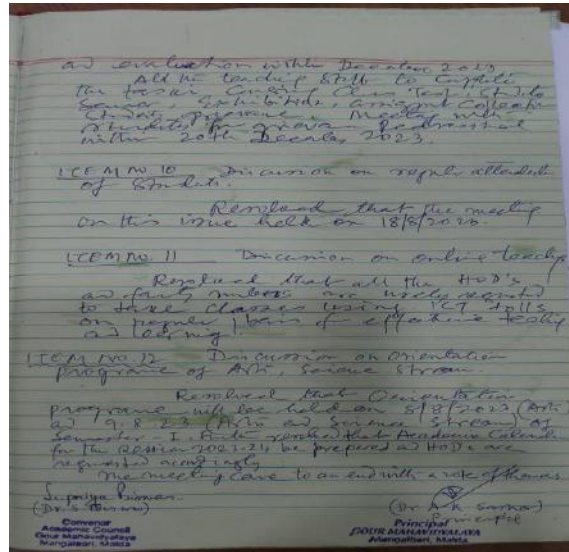 and evaluation within December 2023
All the teaching staff to complete
the Class Test, Students
Seminar, Exhibitions, assignment Collection
Student grievance, Meeting with
students for grievance Redressal
within 20th December 2023.
ITEM NO. 10 Discussion on regular attendance
of Students.
Resolved that the meeting
on this issue held on 18/8/2023.
ITEM NO. 11 Discussion on online teaching
Resolved that all the HOD's
and faculty members are requested
to take classes using ICT tolls
on regular basis for effective teaching
and learning.
ITEM NO. 12 Discussion on orientation
programe of Arts, Science Stream.
Resolved that Orientation
programe will be held on 8/8/2023 (Arts)
and 9.8.23 (Arts and Science Stream) of
Semester - I. resolved that Academic Calendar
for the session 2023-24, be prepared and HOD's are
requested accordingly
The meeting came to an end with a vote of thanks.
Supriya Biswas
(Dr. S. Biswas) (Dr. A. K. Sarkar)
Principal
Convenor
Academic Council
Gour Mahavidyalaya
Mangalbari, Malda
Principal
GOUR MAHAVIDYALAYA
Mangalbari, Malda